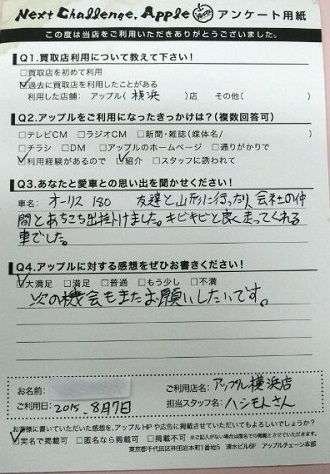 Next Challenge. Apple アンケート用紙
この度は当店をご利用いただきありがとうございました。
Q1.買取店利用について教えて下さい!
□買取店を初めて利用
☑過去に買取店を利用したことがある
利用した店舗: アップル(横浜)店 その他( )
Q2.アップルをご利用になったきっかけは?(複数回答可)
□テレビCM □ラジオCM □新聞・雑誌(媒体名/ )
□チラシ □DM □アップルのホームページ □通りがかりで
☑利用経験があるので ☑紹介 □スタッフに誘われて
Q3.あなたと愛車との思い出を聞かせください!
車名: オーリス 180 友達と山形に行ったり、会社の仲
間とあちこち出掛けました。キビキビと良く走ってくれる
車でした。
Q4.アップルに対する感想をぜひお書きください!
☑大満足 □満足 □普通 □もう少し □不満
次の機会もまたお願いしたいです。
お名前: ご利用店名: アップル横浜店
ご利用日: 2015.8月7日 担当スタッフ名: ハシモトさん
お客様に書いていただいた感想を、アップルHPや広告に掲載させていただいてもよろしいでしょうか?
☑実名で掲載可 □匿名なら掲載可 □掲載不可 ※ご記入がない場合は匿名での掲載とさせていただきます。
東京都千代田区神田岩本町1番地5 清水ビル6F アップルチェーン本部